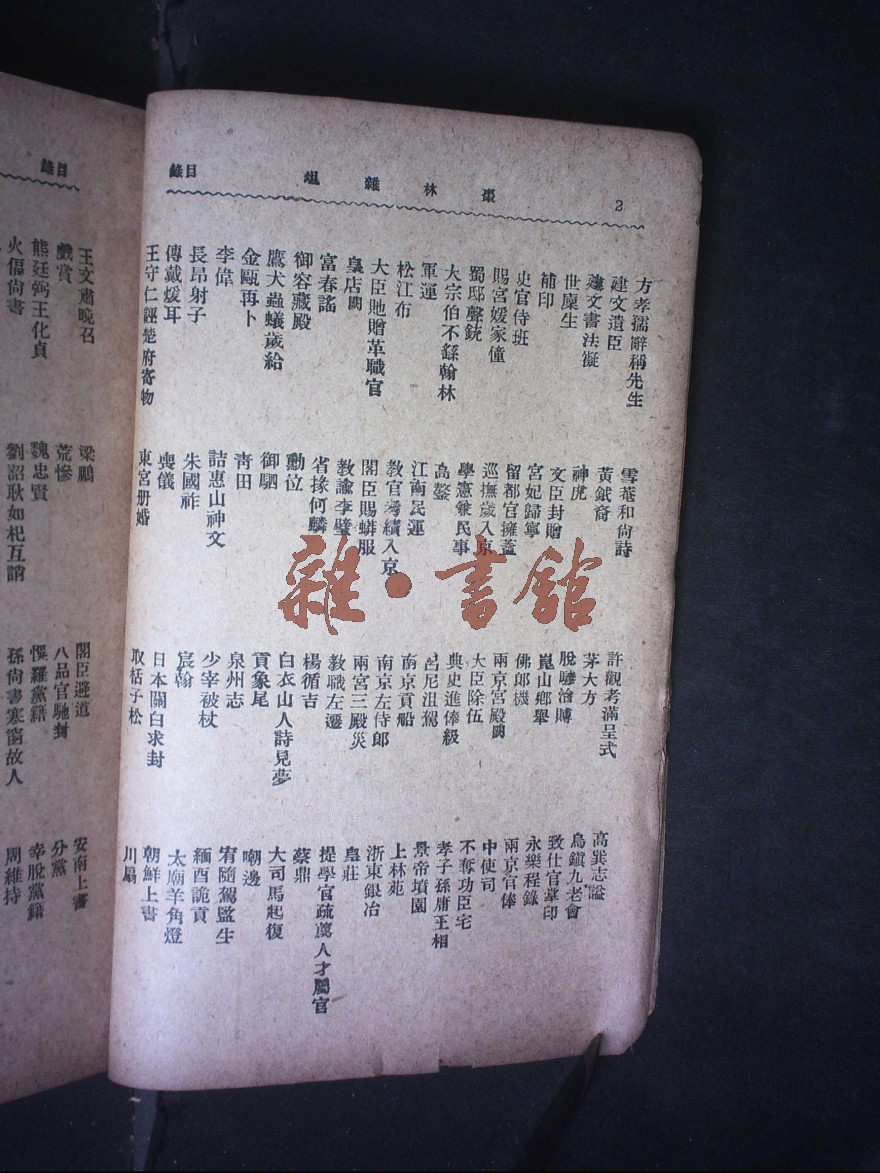 2 棗林雜俎 目錄
方孝孺辭稱先生 雪菴和尚詩 許觀考滿呈式 高巽志諡
建文遺臣 黃鉞裔 茅大方 烏鎮九老會
建文書法儗 神虎 脫 洽賻 致仕官摹印
世廩生 文臣封贈 崑山鄉舉 永樂程錄
補印 宮妃歸寧 佛郎機 兩京官俸
史官侍班 留都官擁蓋 兩京宮殿 中使司
賜宮媛家僮 巡撫歲入京 大臣除伍 不奪功臣宅
蜀邸聲銃 學憲兼民事 典史進俸級 孝子孫庸王相
大宗伯不繇翰林 高鏊 呂尼沮駕 景帝墳園
軍運 江南民運 南京貢船 上林苑
松江布 教官考績入京 南京左侍郎 浙東銀冶
大臣貤贈革職官 閣臣賜蟒服 兩宮三殿災 皇莊
皇店閧 教諭李璧 教職左遷 提學官疏薦人才屬官
富春謠 省掾何麟 楊循吉 蔡鼎
御容藏殿 勳位 白衣山人詩見夢 大司馬起復
鷹犬蟲蟻歲給 御駟 貢象尾 嘲邊
金甌再卜 青田 泉州志 宥隨駕監生
李偉 詰惠山神文 少宰被杖 緬酉詭貢
長昂射子 朱國祚 宸翰 太廟羊角燈
傳戴煖耳 喪儀 日本關白求封 朝鮮上書
王守仁誣楚府寄物 東宮册婚 取括子松 川扇
目錄
王文肅晚召 梁鵬 閣臣避道 安南上書
戲賞 荒慘 八品官馳封 分黨
熊廷弼王化貞 魏忠賢 悞羅黨籍 幸脫黨籍
火偪尙書 劉詔耿如杞互誚 孫尙書寒窗故人 周維持
雜·書館